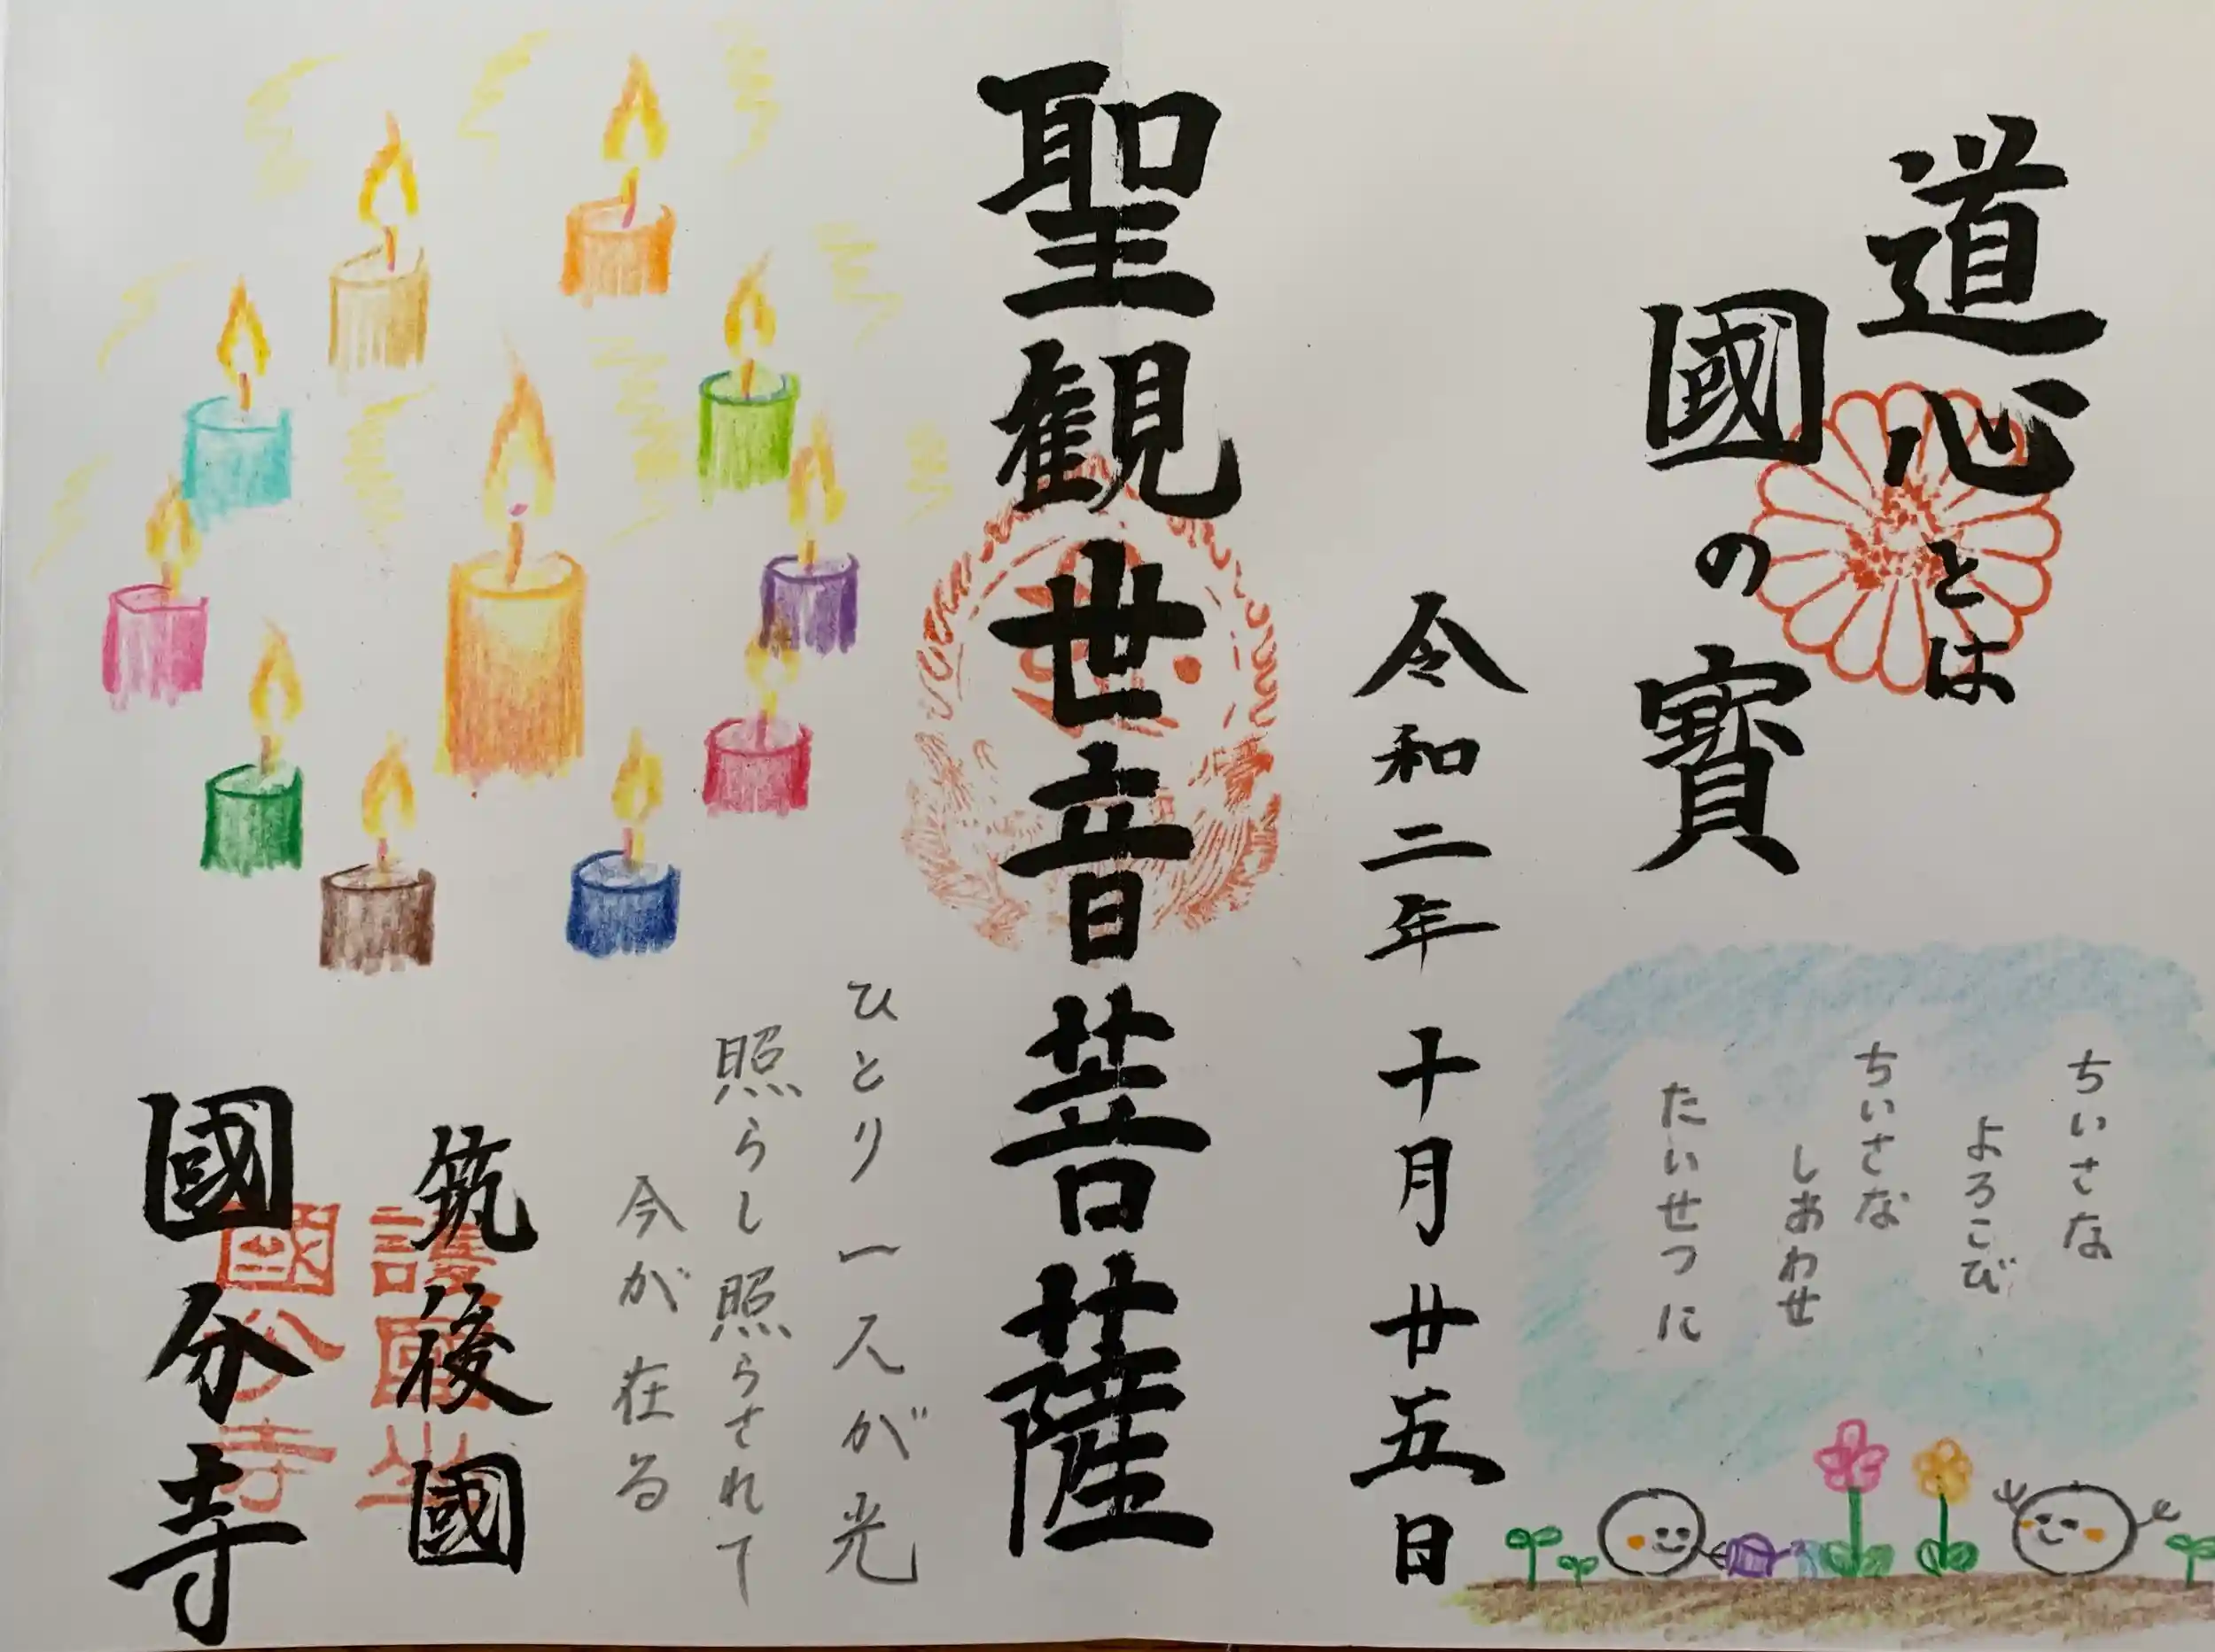 道心とは
國の寶
ちいさな
よろこび
ちいさな
しあわせ
たいせつに
令和二年十月廿五日
聖観世音菩薩
ひとり一人が光
照らし照らされて
今が在る
筑後國
國分寺
護國山
國分寺